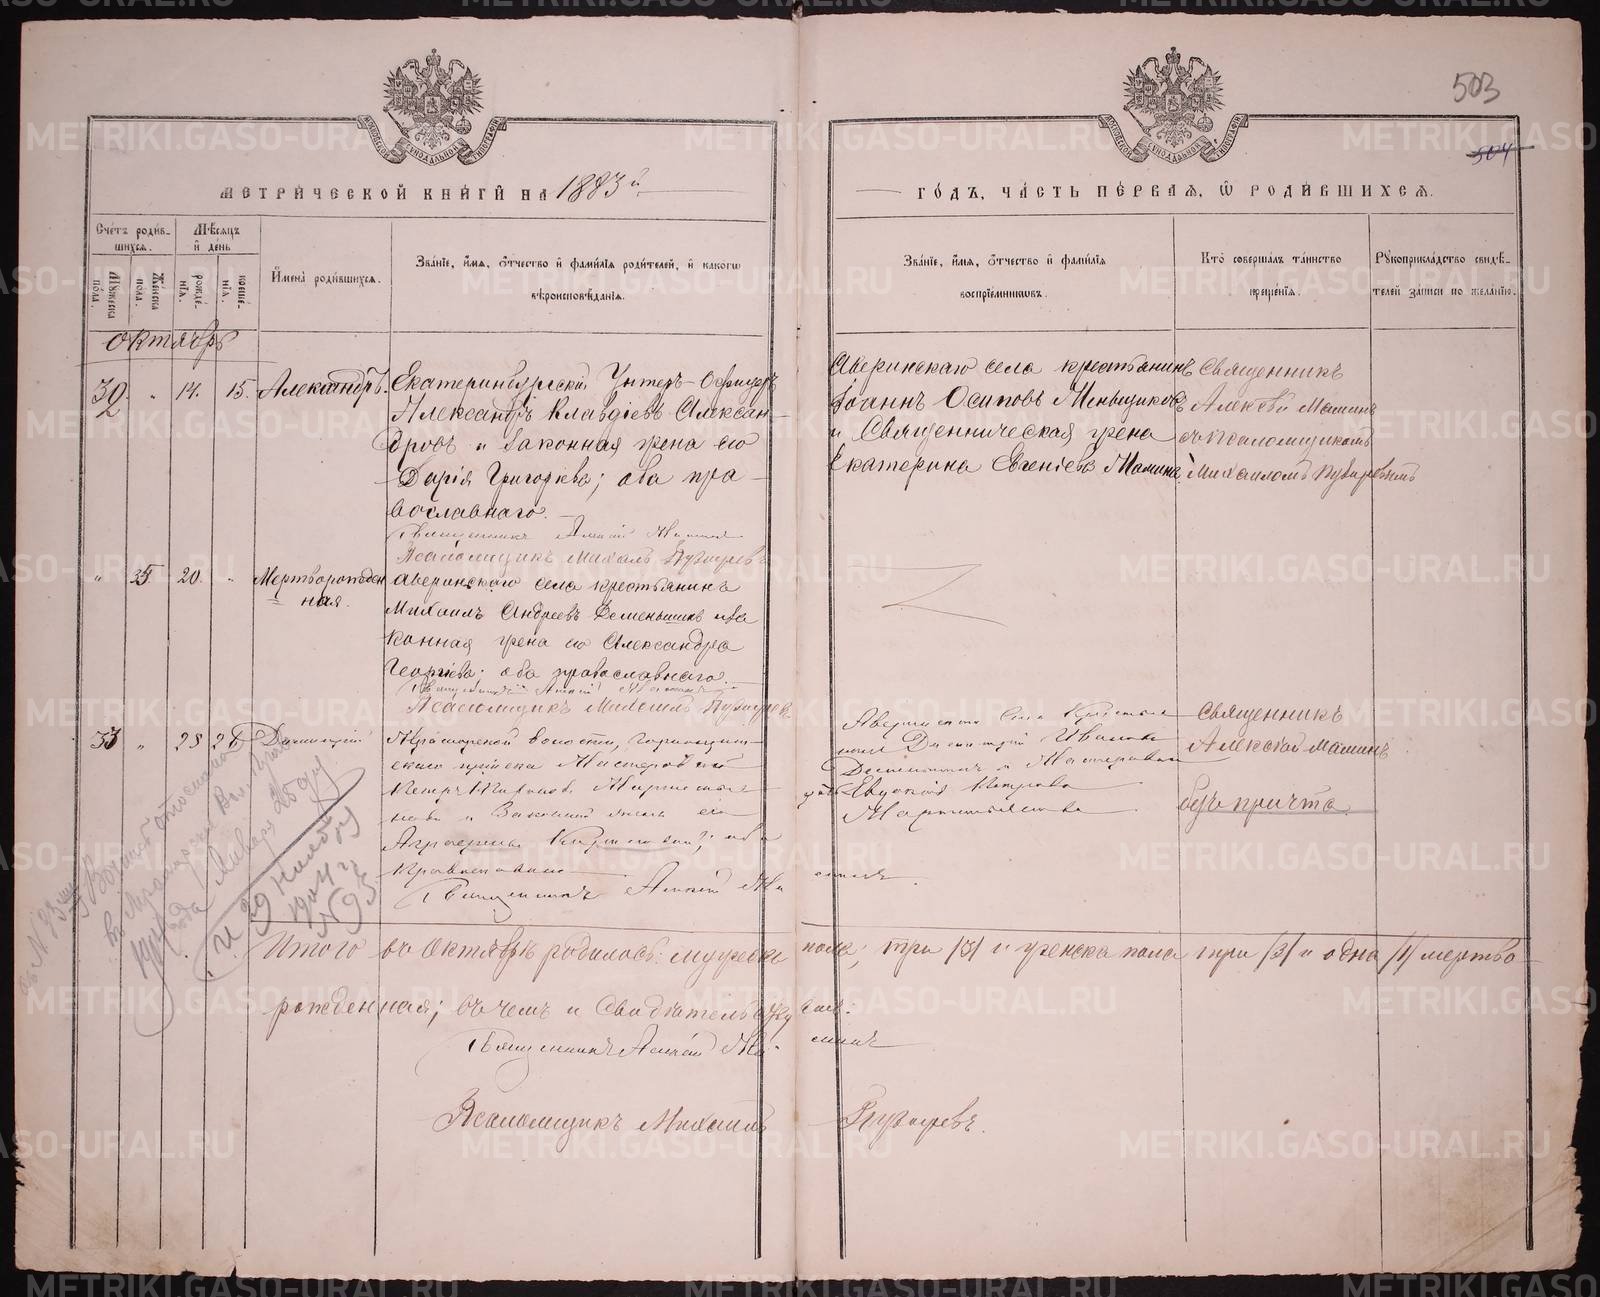 503
504
МЕТРИЧЕСКОЙ КНИГИ НА 1883й
ГОДЪ, ЧАСТЬ ПЕРВАЯ, Ѿ РОДИВШИХСЯ.
Счетъ родив-
шихся.
Мѣсяцъ
и день
Мужеска
пола.
Женска
пола.
рожде-
нія.
креще-
нія.
Имена родившихся.
Званіе, имя, ѿтчество и фамилія родителей, и какогѡ
вѣроисповѣданія.
Званіе, имя, ѿтчество и фамилія
воспріемниковъ.
Кто совершалъ таинство
крещенія.
Рукоприкладство свидѣ-
телей записи по желанію.
Октябрь
32. " 14. 15. Александръ.
Екатеринбургскій Унтеръ-Офицеръ
Александръ Клавдіевъ Алексан-
дровъ и законная жена его
Дарія Григоріева; оба пра-
вославнаго.
Священникъ Алексій Маминъ
Псаломщикъ Михаилъ Пузыревъ
Аверинскаго села крестьянинъ
Іоаннъ Осиповъ Меньщиковъ
и Священническая жена
Екатерина Евгеніева Мамина
Священникъ
Алексѣй Маминъ
съ Псаломщикомъ
Михаиломъ Пузыревымъ
" 35. 20. " Мертворожден
ная.
Аверинскаго села крестьянинъ
Михаилъ Андреевъ и за
конная жена его Александра
Георгіева; оба православнаго.
Священникъ Алексій Маминъ
Псаломщикъ Михаилъ Пузыревъ
33 " 23 26 Димитрій
Мраморской волости,
Мастеровой
и Законная жена его
оба
Православнаго
Священникъ Алексій Ма минъ.
Аверинскаго Села Крестья
нинъ Димитрій Ивановъ
и Мастеровая
Евдокія Петрова
Священникъ
Алексѣй Маминъ
безъ причта.
Января 25 дня
и 29 Ноября
1904 г.
№ 95
Итого въ Октябрѣ родилось: мужеска пола, три /3/ и женска пола три /3/ и одна /1/ мертво-
рожденная; въ чемъ и Свидѣтельствуемъ.
Священникъ Алексій Ма- минъ
Псаломщикъ Михаилъ Пузыревъ.
METRIKI.GASO-URAL.RU